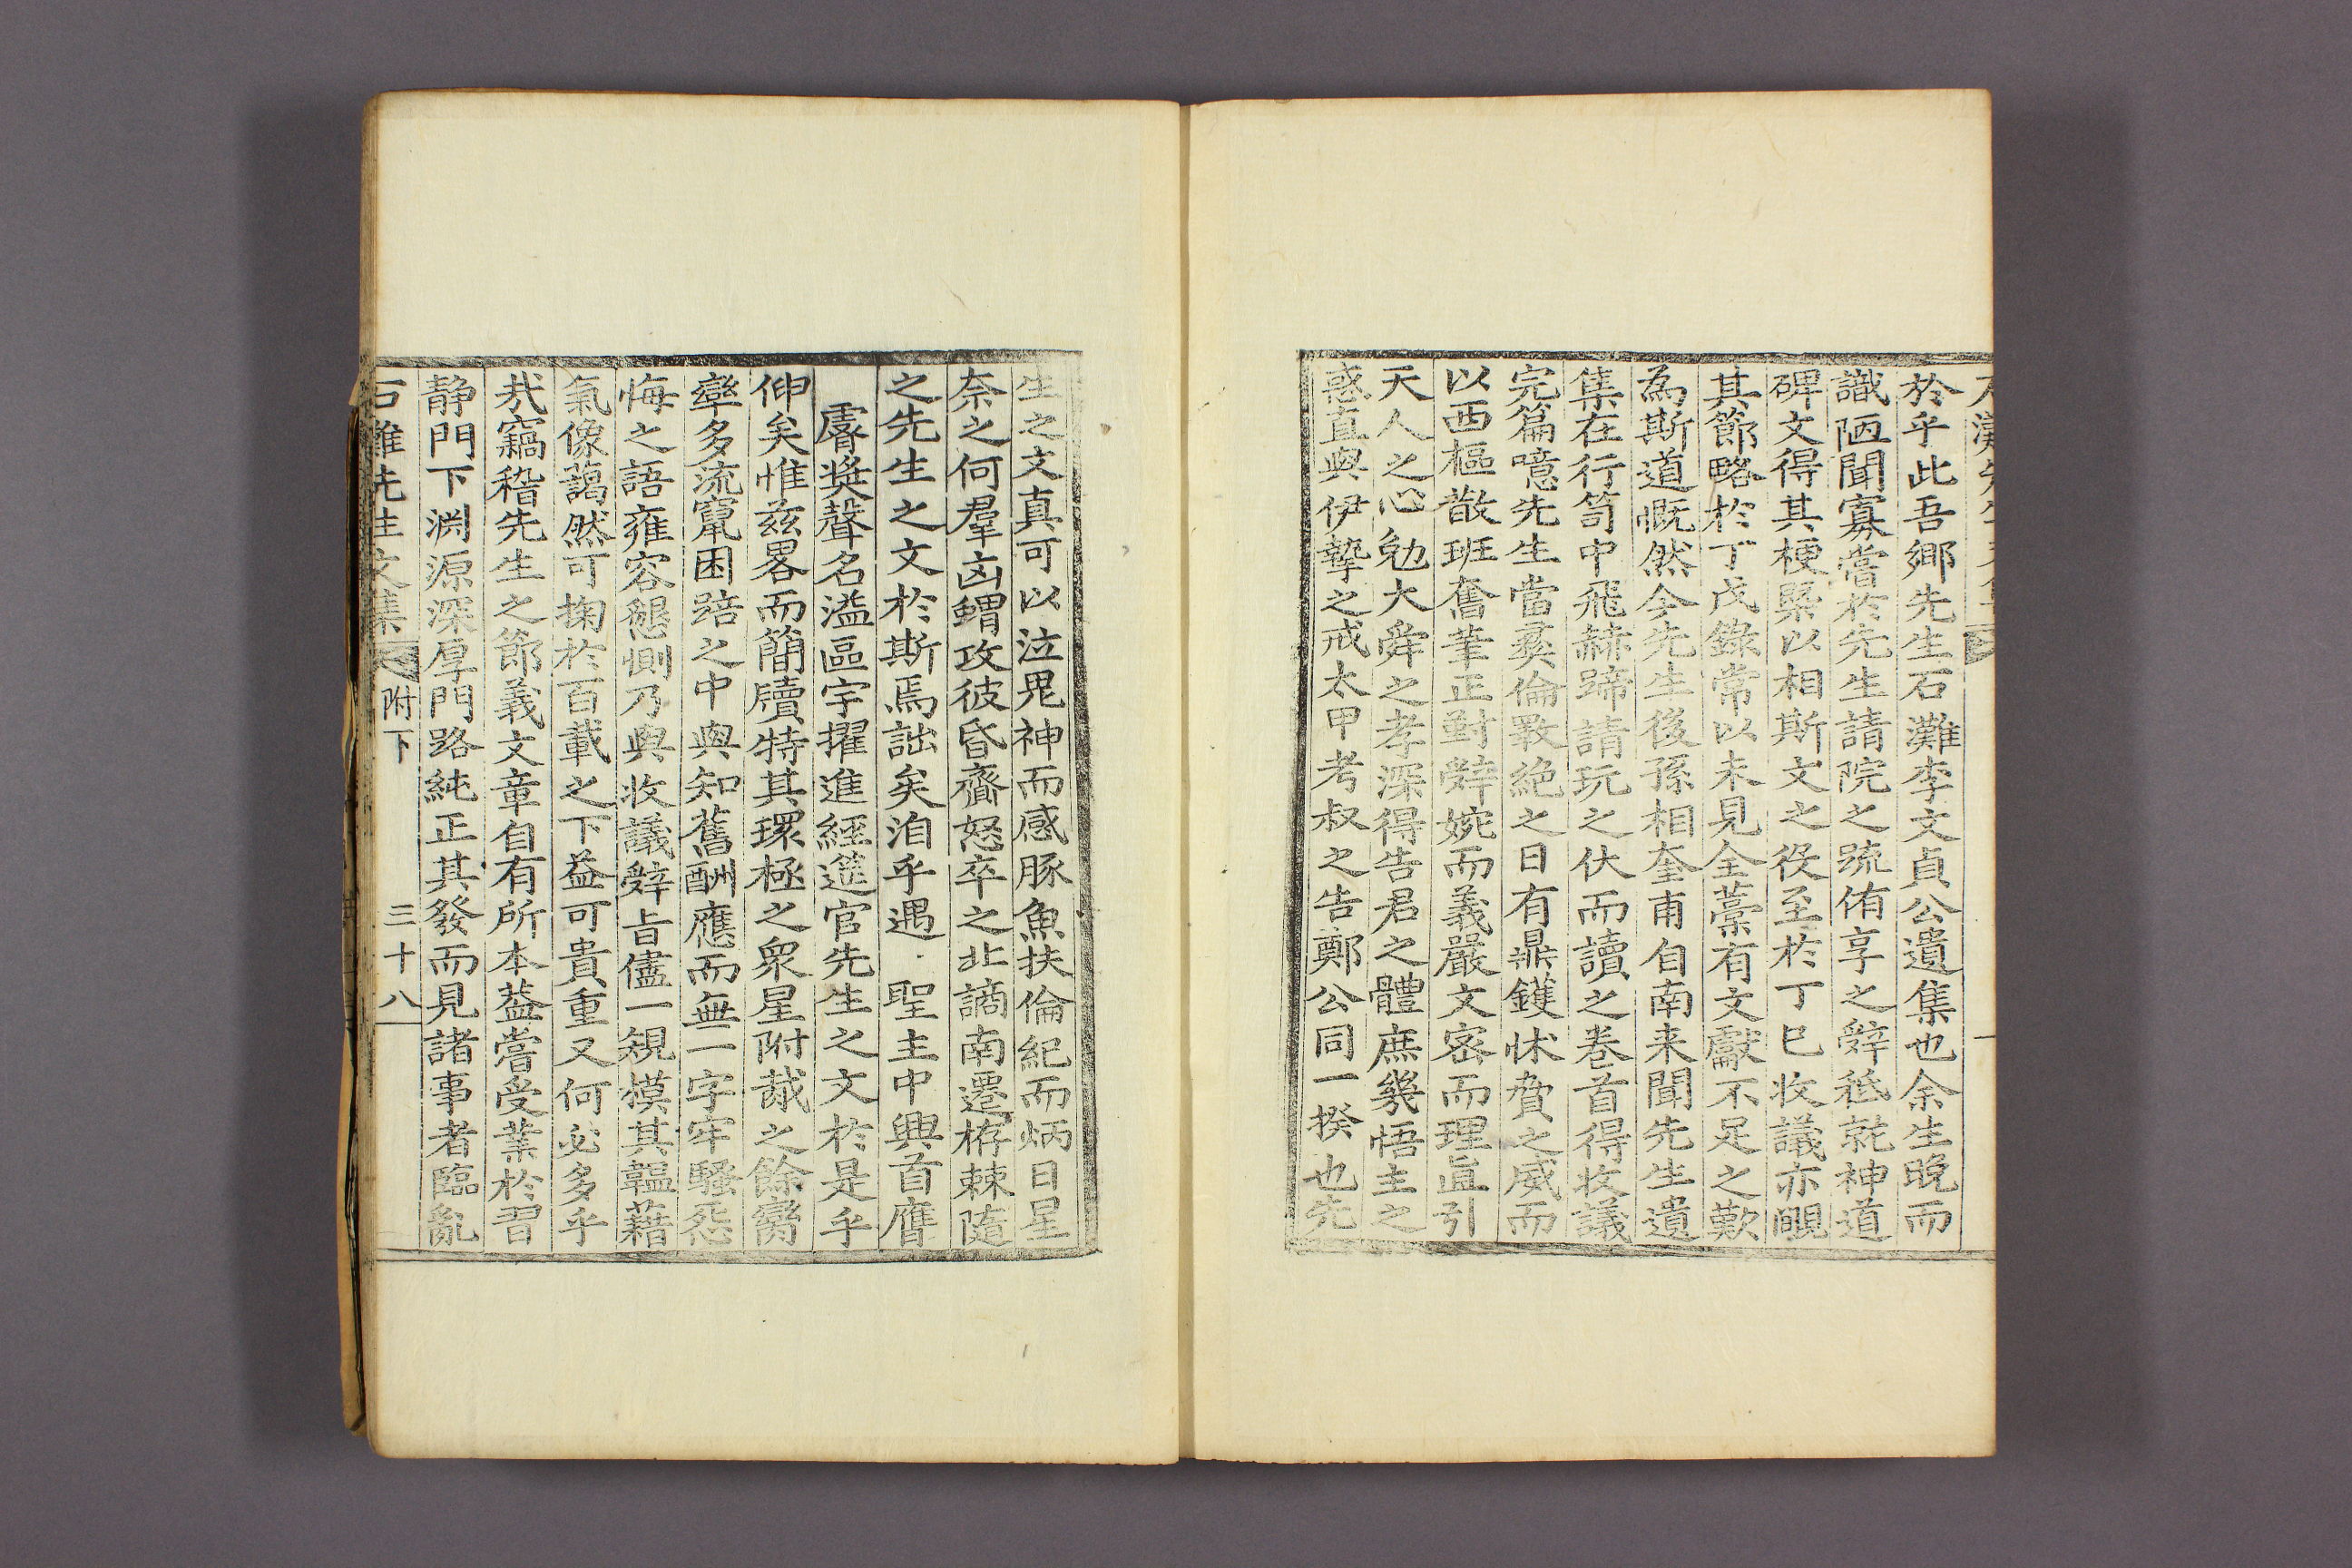 於乎此吾鄉先生石灘李文貞公遺集也余生晚而
識陋聞寡嘗於先生請院之疏侑享之辭秪就神道
碑文得其梗槩以相斯文之役至於丁巳收議亦覵
其節略於丁戊錄常以未見全藁有文獻不足之歎
為斯道慨然今先生後孫相奎甫自南来聞先生遺
集在行笥中飛赫蹄請玩之伏而讀之卷首得收議
完篇噫先生當彛倫斁絶之日有鼎鑊怵費之威而
以西樞散班奮筆正對辭婉而義嚴文宻而理直引
天人之心勉大舜之孝深得告君之體庶幾悟主之
惑直與伊摯之戒太甲考叔之告鄭公同一揆也先
生之文真可以泣鬼神而感豚魚扶倫紀而炳日星
奈之何羣凶蝟攻彼昏齌怒卒之北謫南遷栫棘隨
之先生之文於斯焉詘矣洎乎遇 聖主中興首膺
睿奬聲名溢區宇擢進經筵官先生之文於是乎
伸矣惟玆畧而簡牘特其環極之衆星附哉之餘臠
率多流竄困踣之中與知舊酬應而無一字牢騷怨
悔之語雍容懇惻乃與收議辭旨儘一䂓模其韞藉
氣像藹然可掬於百載之下益可貴重又何必多乎
㦲竊稽先生之節義文章自有所本葢嘗受業於習
静門下渊源深厚門路純正其發而見諸事者臨亂
石灘先生文集 附下 三十八